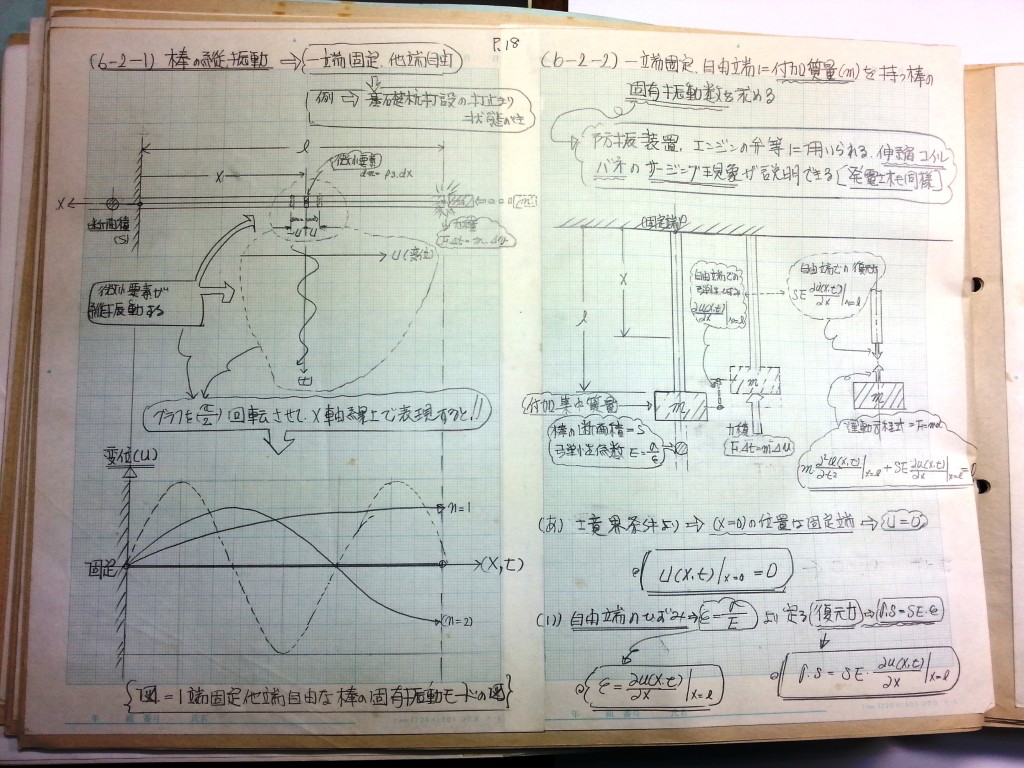 P.18
(6-2-1) 棒の縦振動 ⇒ 一端固定、他端自由
例 ⇒ 基礎杭打設の打止まり
状態の時
l
x
微小要素
dm=ρs.dx
x
断面積
(S)
u u
力積
F.Δt=m.Δu
U(変位)
微小要素が
縦振動する
(t)
グラフを(π/2)回転させて、X軸線上で表現すると!!
変位(U)
n=1
固定
(X,t)
(n=2)
{図=1端固定他端自由な棒の固有振動モードの図}
(6-2-2) 一端固定、自由端に付加質量(m)を持つ棒の
固有振動数を求める
防振装置、エンジンの弁等に用いられる、伸縮コイル
バネのサージング現象が説明できる(発電立杭も同様)
固定端
x
l
自由端での
∂u(x,t)/∂x|x=l
自由端での復元力
SE ∂u(x,t)/∂x|x=l
付加集中質量
m
m
m
棒の断面積=S
弾性係数 E=σ/ε
力積
F.Δt=m.Δu
運動方程式=F=mα
m ∂²u(x,t)/∂t²|x=l + SE ∂u(x,t)/∂x|x=l = 0
(あ) 境界条件より ⇒ (X=0)の位置は固定端 → U=0
U(X,t)|x=0 = 0
(い) 自由端のひずみ ⇒ ε=σ/E より定る 復元力 ⇒ σ.S=SE.ε
ε = ∂u(x,t)/∂x|x=l
σ.S = SE.∂u(x,t)/∂x|x=l